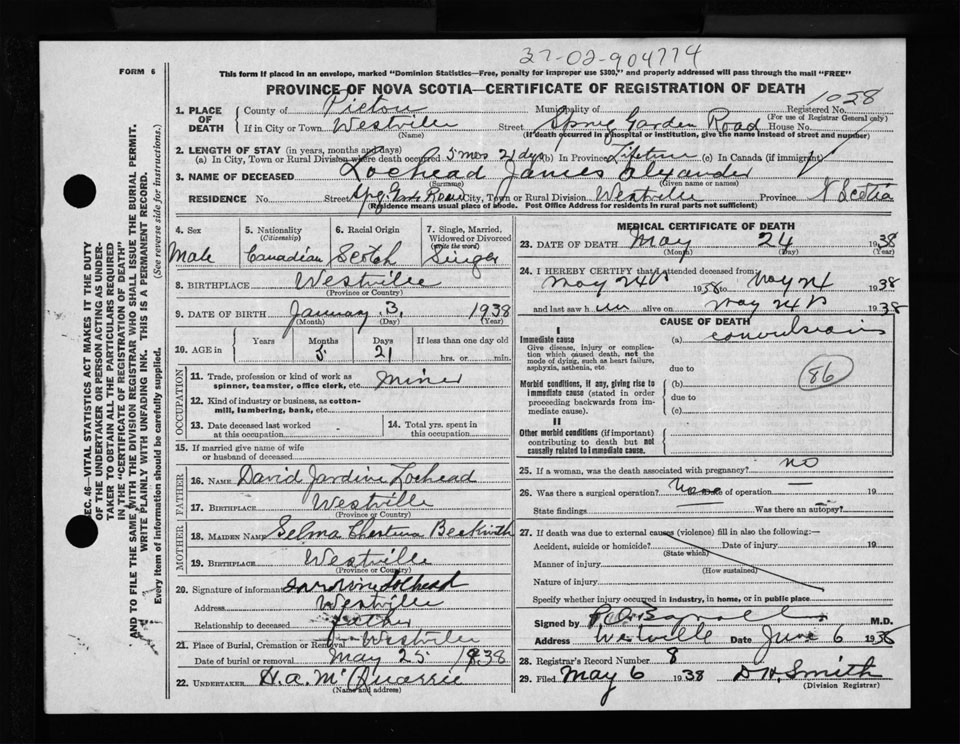 37-02-904774
FORM 6
This form if placed in an envelope, marked "Dominion Statistics—Free, penalty for improper use $300," and properly addressed will pass through the mail "FREE"
PROVINCE OF NOVA SCOTIA—CERTIFICATE OF REGISTRATION OF DEATH
1028
1. PLACE OF DEATH County of Pictou Municipality of Registered No.
(For use of Registrar General only)
If in City or Town Westville Street Spring Garden Road House No.
(Name) (If death occurred in a hospital or institution, give the name instead of street and number)
2. LENGTH OF STAY (in years, months and days)
(a) In City, Town or Rural Division where death occurred 5 mos 21 dys (b) In Province Lifetime (c) In Canada (if immigrant)
3. NAME OF DECEASED Lochead James Alexander
(Surname) (Given name or names)
RESIDENCE No. Street Spg. Road City, Town or Rural Division Westville Province N Scotia
(Residence means usual place of abode. Post Office Address for residents in rural parts not sufficient)
4. Sex 5. Nationality (Citizenship) 6. Racial Origin 7. Single, Married, Widowed or Divorced (Write the word)
Male Canadian Scotch
8. BIRTHPLACE Westville
(Province or Country)
9. DATE OF BIRTH January 3 1938
(Month) (Day) (Year)
10. AGE in Years Months Days If less than one day old
5 21 hrs. or min.
OCCUPATION
11. Trade, profession or kind of work as spinner, teamster, office clerk, etc. Miner
12. Kind of industry or business, as cotton-mill, lumbering, bank, etc.
13. Date deceased last worked at this occupation 14. Total yrs. spent in this occupation
15. If married give name of wife or husband of deceased
FATHER
16. NAME David Jardine Lochead
17. BIRTHPLACE Westville
(Province or Country)
MOTHER
18. MAIDEN NAME Selma Beckwith
19. BIRTHPLACE Westville
(Province or Country)
20. Signature of informant Jardine Lochead
Address Westville
Relationship to deceased father
21. Place of Burial, Cremation or Removal Westville
Date of burial or removal May 25 1938
22. UNDERTAKER H. A. McQuarrie
(Name and address)
MEDICAL CERTIFICATE OF DEATH
23. DATE OF DEATH May 24 1938
(Month) (Day) (Year)
24. I HEREBY CERTIFY that I attended deceased from
May 24th 1938 to May 24 1938
and last saw h im alive on May 24th 1938
CAUSE OF DEATH
I
Immediate cause (a) convulsions
Give disease, injury or complication which caused death, not the mode of dying, such as heart failure, asphyxia, asthenia, etc.
due to
86
Morbid conditions, if any, giving rise to immediate cause (stated in order proceeding backwards from immediate cause).
(b)
due to
(c)
II
Other morbid conditions (if important) contributing to death but not causally related to immediate cause.
25. If a woman, was the death associated with pregnancy? no
26. Was there a surgical operation? None Date of operation 19
State findings Was there an autopsy?
27. If death was due to external causes (violence) fill in also the following:—
Accident, suicide or homicide? Date of injury 19
(State which)
Manner of injury
(How sustained)
Nature of injury
Specify whether injury occurred in industry, in home, or in public place
Signed by M.D.
Address Westville Date June 6 1938
28. Registrar's Record Number 8
29. Filed May 6 1938 D H. Smith
(Division Registrar)
SEC. 46—VITAL STATISTICS ACT MAKES IT THE DUTY
OF THE UNDERTAKER OR PERSON ACTING AS UNDER-
TAKER TO OBTAIN ALL THE PARTICULARS REQUIRED
IN THE "CERTIFICATE OF REGISTRATION OF DEATH"
AND TO FILE THE SAME WITH THE DIVISION REGISTRAR WHO SHALL ISSUE THE BURIAL PERMIT.
WRITE PLAINLY WITH UNFADING INK. THIS IS A PERMANENT RECORD.
Every item of information should be carefully supplied. (See reverse side for instructions.)